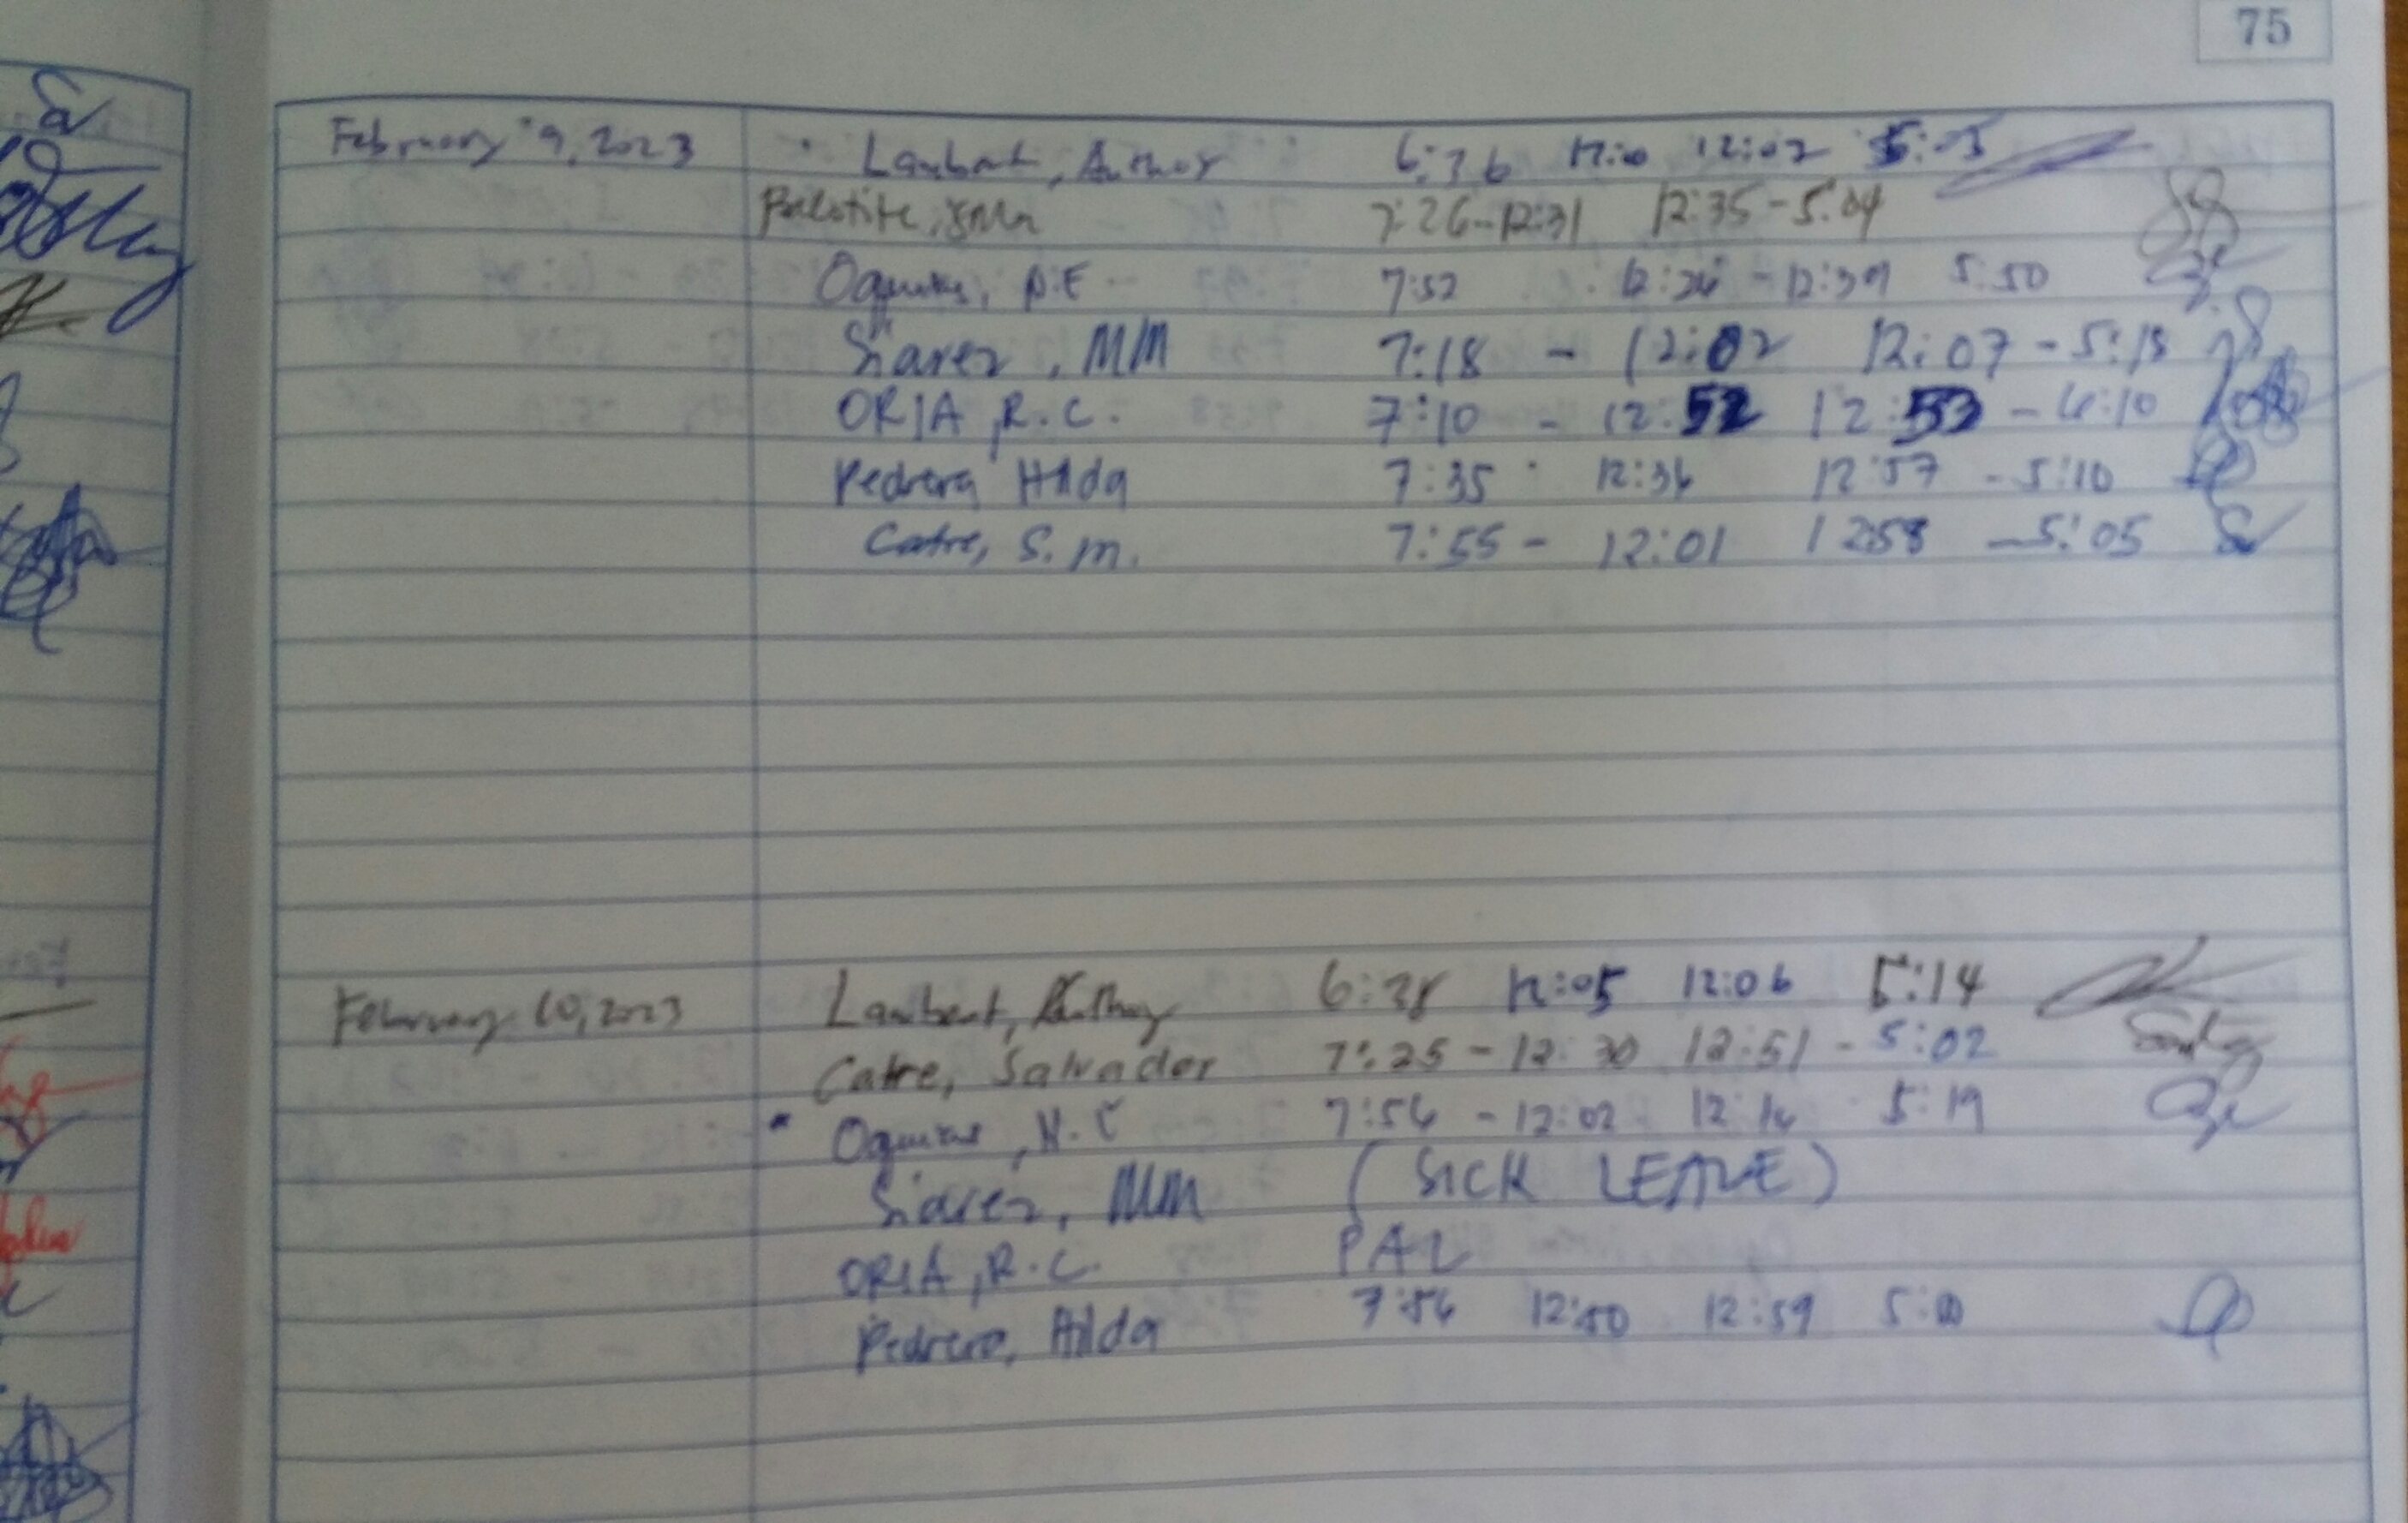 75
February 9, 2023 Lambert, Anthony 6:36 12:02 5:05
7:26-12:31 12:35-5:04
7:52 12:39 5:50
Siarez, MM 7:18 - 12:02 12:07 - 5:18
ORIA, R.C. 7:10 - 12:52 12:53 - 6:10
Pedrera Hilda 7:35 12:36 12:57 - 5:10
Catre, S.M. 7:55 - 12:01 12:58 - 5:05
February 10, 2023 Lambert, Anthony 6:38 12:05 12:06 5:14
Catre, Salvador 7:25 - 12:30 12:51 - 5:02
7:56 - 12:02 12:14 5:19
Siarez, MM (SICK LEAVE)
ORIA, R.C. PAL
Pedrera, Hilda 7:56 12:50 12:59